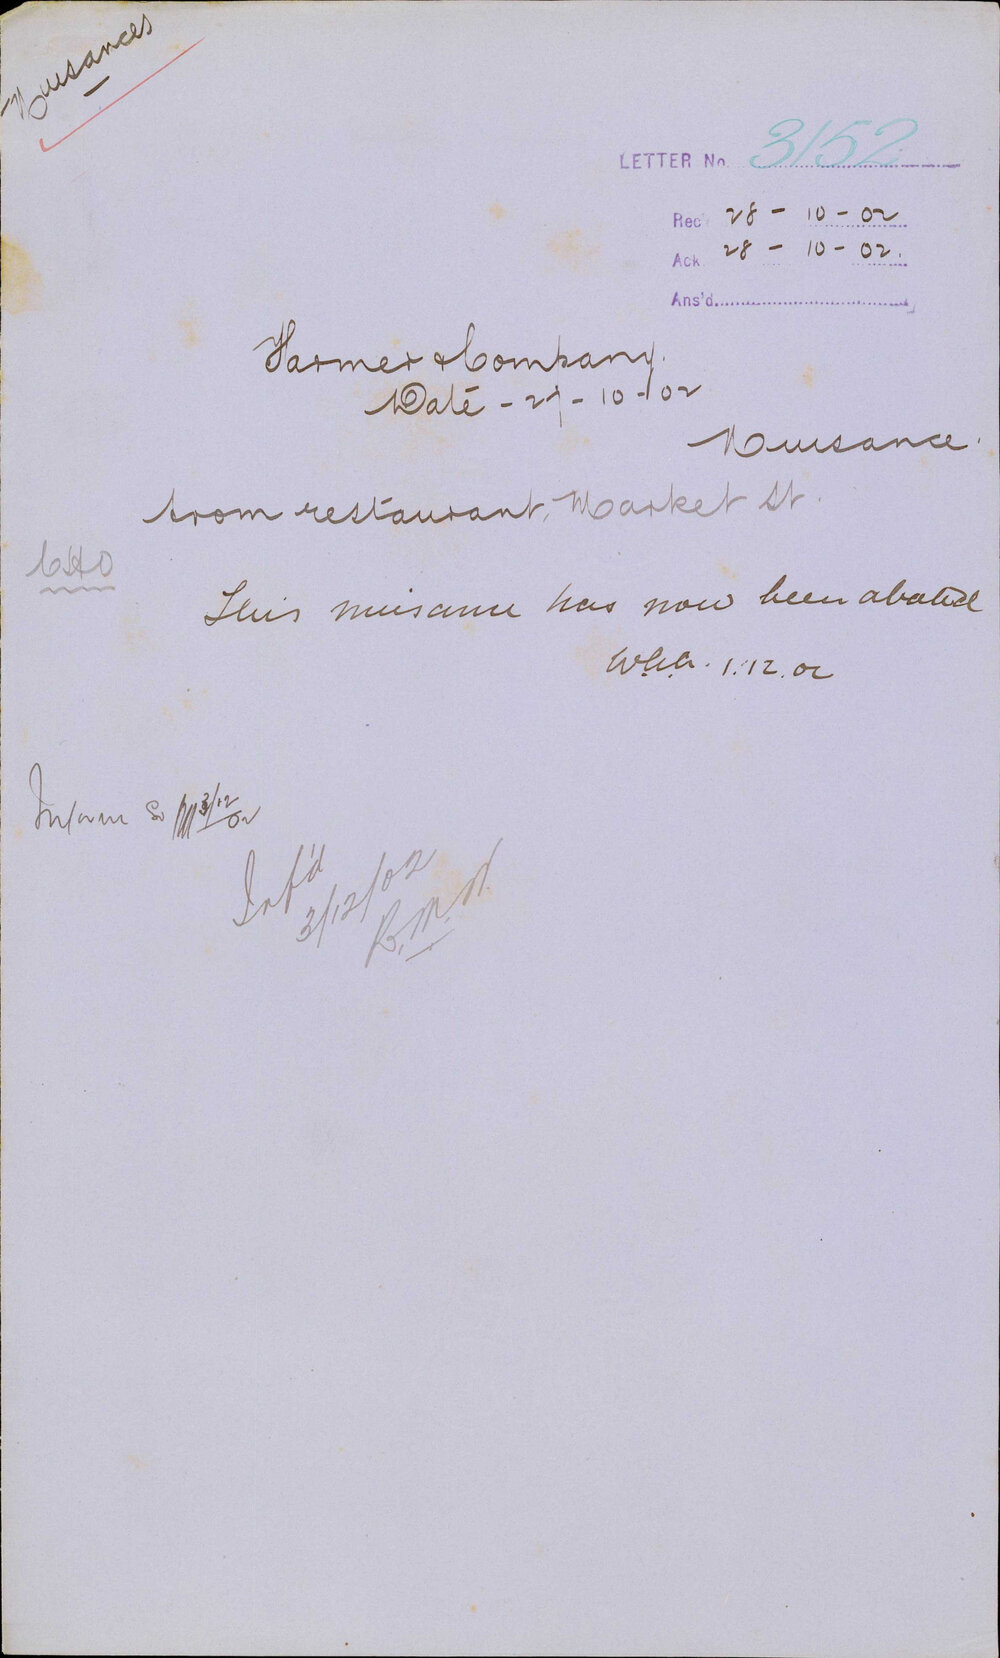 Nuisances
LETTER No. 3152
Rec 28 - 10 - 02
Ack 28 - 10 - 02.
Ans'd.
Farmer & Company.
Date - 27 - 10 - 02
Nuisance
from restaurant, Market St.
CHO
This nuisance has now been abated
1.12.02
Inform So 3/12/02
Inf'd
3/12/02
R.M.